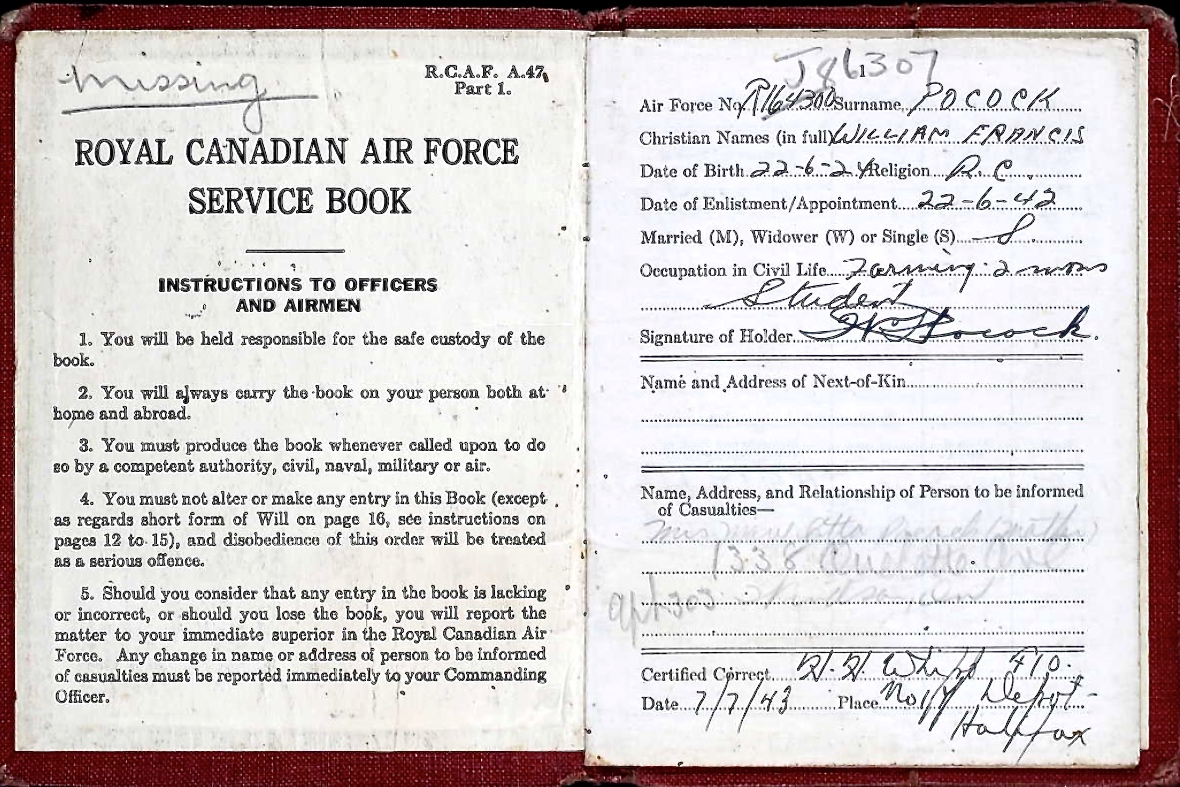 missing
R.C.A.F. A.47,
Part 1.
ROYAL CANADIAN AIR FORCE
SERVICE BOOK
INSTRUCTIONS TO OFFICERS
AND AIRMEN
1. You will be held responsible for the safe custody of the
book.
2. You will always carry the book on your person both at
home and abroad.
3. You must produce the book whenever called upon to do
so by a competent authority, civil, naval, military or air.
4. You must not alter or make any entry in this Book (except
as regards short form of Will on page 16, see instructions on
pages 12 to 15), and disobedience of this order will be treated
as a serious offence.
5. Should you consider that any entry in the book is lacking
or incorrect, or should you lose the book, you will report the
matter to your immediate superior in the Royal Canadian Air
Force. Any change in name or address of person to be informed
of casualties must be reported immediately to your Commanding
Officer.
J86307
1
Air Force No. R164300 Surname, POCOCK
Christian Names (in full) WILLIAM FRANCIS
Date of Birth 22-6-24 Religion R.C.
Date of Enlistment/Appointment 22-6-42
Married (M), Widower (W) or Single (S) S.
Occupation in Civil Life Farming 2 mons
Student
Signature of Holder W Pocock.
Name and Address of Next-of-Kin
Name, Address, and Relationship of Person to be informed
of Casualties—
Mrs (Mother)
1338 Ouellette Ave
Apt 303 Windsor, Ont
Certified Correct F/O.
Date 7/7/43 Place No Depot
Halifax